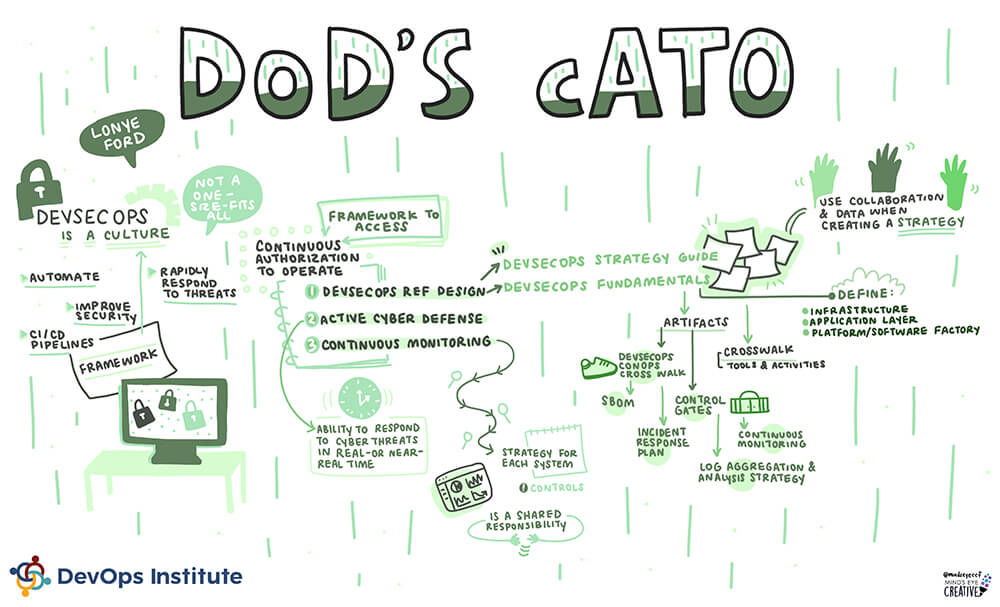 DOD'S cATO
LONYE
FORD
NOT A
ONE-
SIZE-FITS
ALL
DEVSECOPS
IS A CULTURE
AUTOMATE
RAPIDLY
RESPOND
TO THREATS
IMPROVE
SECURITY
CI/CD
PIPELINES
FRAMEWORK
FRAMEWORK TO
ACCESS
CONTINUOUS
AUTHORIZATION
TO OPERATE
1 DEVSECOPS REF DESIGN
2 ACTIVE CYBER DEFENSE
3 CONTINUOUS MONITORING
ABILITY TO RESPOND
TO CYBER THREATS
IN REAL-OR NEAR-
REAL TIME
DEVSECOPS STRATEGY GUIDE
DEVSECOPS FUNDAMENTALS
USE COLLABORATION
& DATA WHEN
CREATING A STRATEGY
DEFINE:
INFRASTRUCTURE
APPLICATION LAYER
PLATFORM/SOFTWARE FACTORY
ARTIFACTS
CROSSWALK
TOOLS & ACTIVITIES
DEVSECOPS
CONOPS
CROSS WALK
SBOM
CONTROL
GATES
INCIDENT
RESPONSE
PLAN
CONTINUOUS
MONITORING
LOG AGGREGATION &
ANALYSIS STRATEGY
STRATEGY FOR
EACH SYSTEM
CONTROLS
IS A SHARED
RESPONSIBILITY
DevOps Institute
MIND'S EYE
CREATIVE